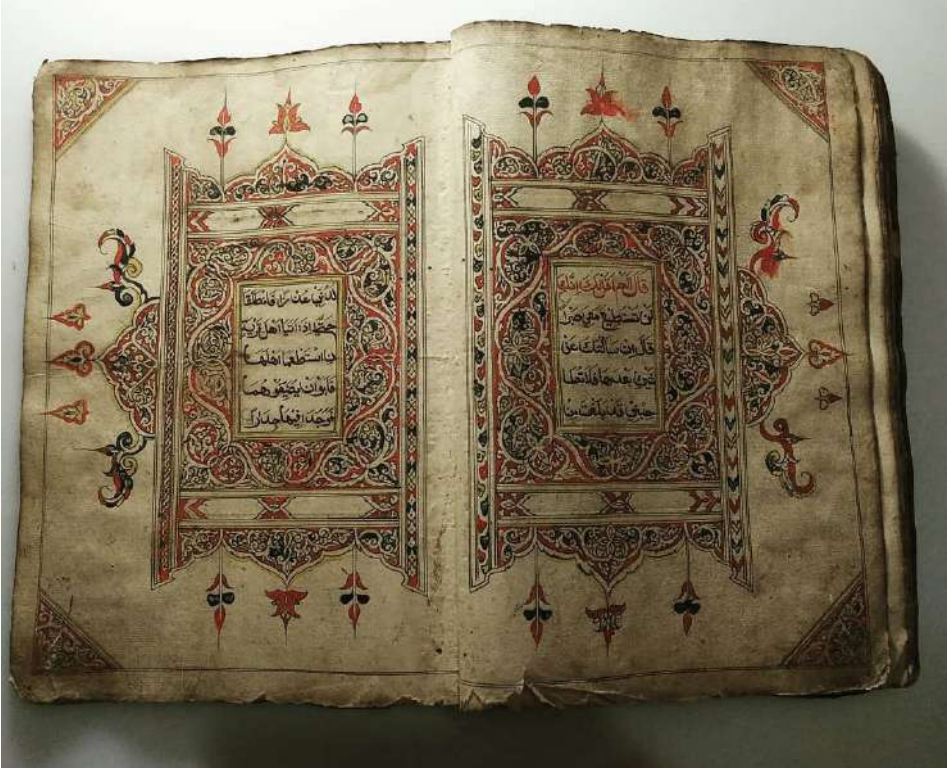 قَالَ اَلَمْ اَقُلْ لَكَ اِنَّكَ
لَنْ تَسْتَطِيْعَ مَعِيَ صَبْرًا
قَالَ اِنْ سَاَلْتُكَ عَنْ
شَيْءٍ بَعْدَهَا فَلَا تُصَا
حِبْنِيْ قَدْ بَلَغْتَ مِنْ
لَدُنِّيْ عُذْرًا فَانْطَلَقَا
حَتّٰى اِذَا اَتَيَا اَهْلَ قَرْيَةِ
نِ اسْتَطْعَمَا اَهْلَهَا
فَاَبَوْا اَنْ يُضَيِّفُوْهُمَا
فَوَجَدَا فِيْهَا جِدَارًا